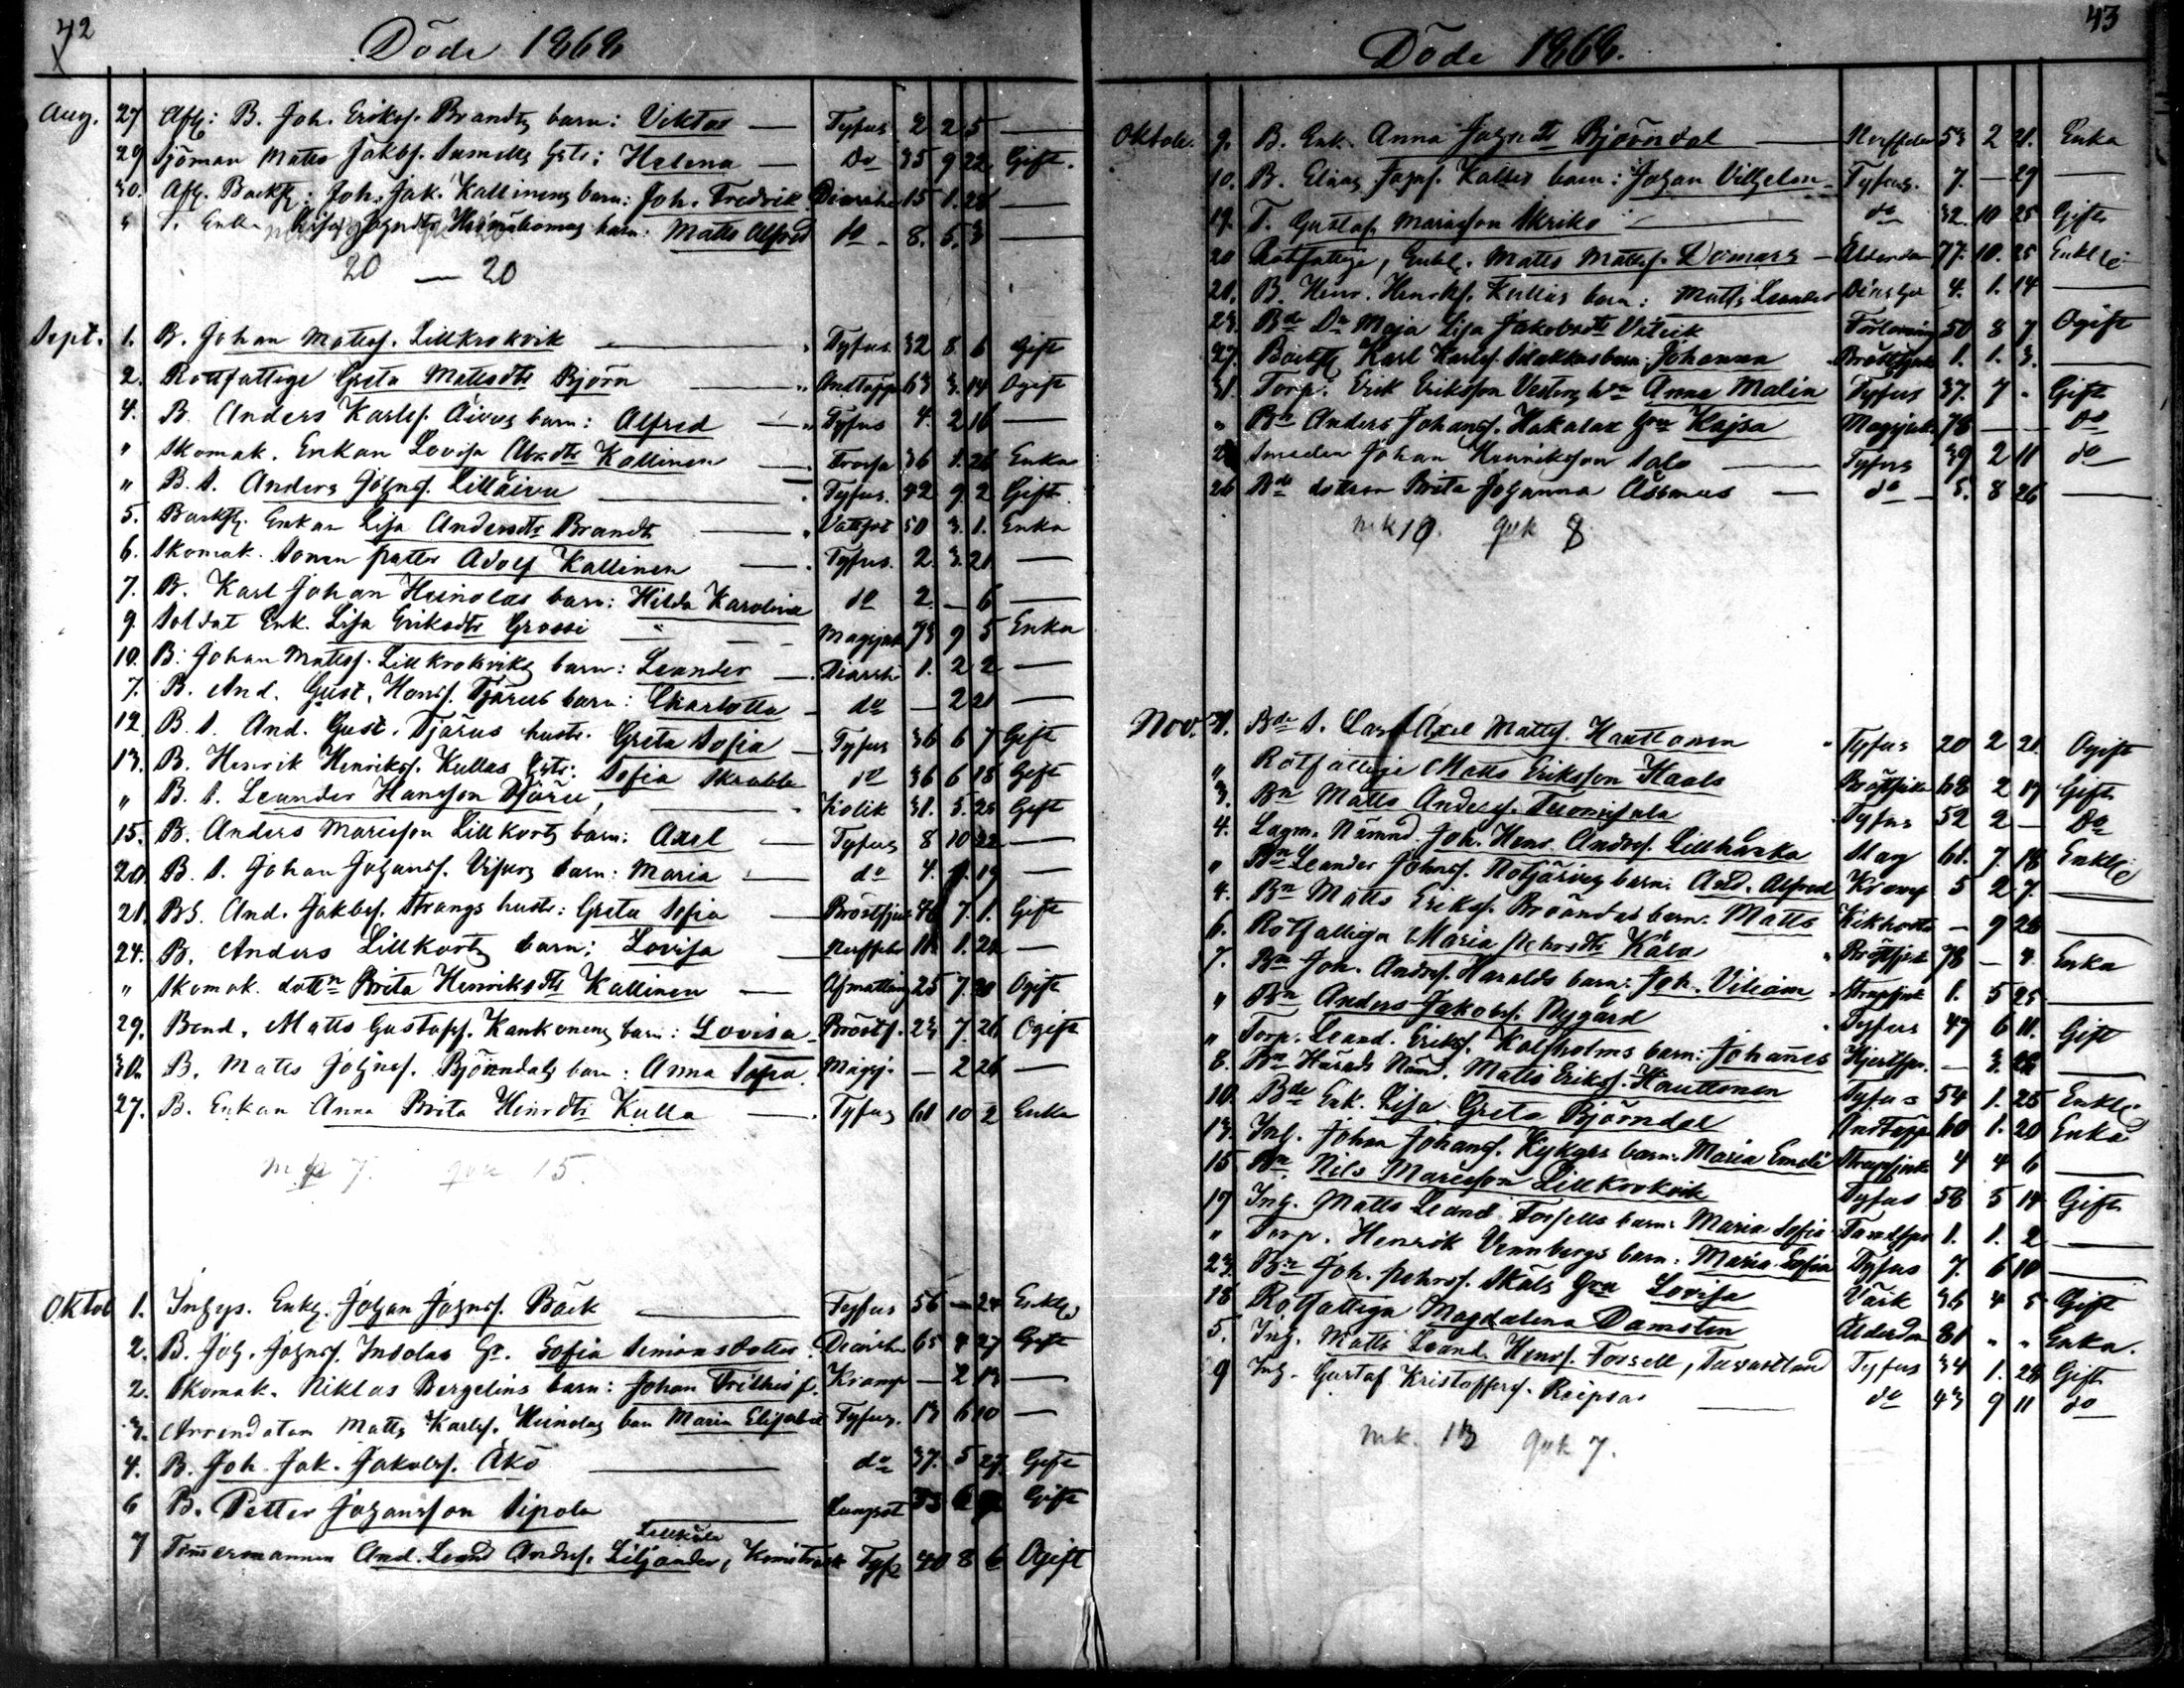 42
Döde 1868
Aug. 27 Afl: B. Joh. Eriksf. Brandts barn: Viktor — Tyfus 2 2 5 —
29 Sjöman Matts Jakbf. Sumells Hstr: Helena — Do 35 9 22 Gift.
30. Afl. Backst: Joh. Jak. Kallinens barn: Joh. Fredrik Diarrhe 15 1. 28 —
" T. Enk. barn: Matts Alfred do - 8. 5. 3 —
20 — 20
Sept. 1. B. Johan Mattsf. Lillkrokvik — Tyfus 32 8 6 Gift
2. Rotfattige Greta Mattsdtr Björn — Andtäppa 63 3. 14 Ogift
4. B. Anders Karlsf. Äivus barn: Alfred — Tyfus 4. 2 16 —
" Skomak. Enkan Lovisa Abrdtr Kallinen — 36 1. 26 Enka
" B. S. Anders Johnsf. Lilläivu — Tyfus. 42 9 2 Gift.
5. Backst. Enkan Lisa Andersdtr Brandt — Vattsot 50 3. 1. Enka
6. Skomak. Sonen Petter Adolf Kallinen — Tyfus. 2. 3. 21 —
7. B. Karl Johan Heinolas barn: Hilda Karolina do 2. — 6 —
9 Soldat Enk. Lisa Eriksdtr Grossi — Magsjuk 73 9 5 Enka
10. B. Johan Mattsf. Lillkrokviks barn: Leander — Diarrh 1. 2 2 —
7. B. And. Gust. Hansf. Tjärus barn: Charlotta — do — 2 21 —
12 B. S. And. Gust. Tjärus hustr. Greta Sofia — Tyfus 36 6 7 Gift
13. B. Henrik Henriksf. Kullas Hstr: Sofia Skrabba do 36 6 18 Gift
" B. S. Leander Hansson Tjäru, — Kolik 31. 5. 25 Gift
15. B. Anders Marisson Lillkorts barn: Axel — Tyfus 8 10 22 —
20. B. S. Johan Johansf. Visurs barn: Maria — do 4. 1. 19 —
21. BS. And. Jakbsf. Strangs hustr: Greta Sofia — Bröstsjuk 46 7. 1. Gift
24. B. Anders Lillkorts barn: Lovisa — 11. 1. 22 —
" Skomak. dottn Brita Henriksdtr Kallinen — Afmattning 25 7. 30 Ogift
29. Bond. Matts Gustafsf. Kankonens barn: Lovisa — Bröstf. 23 7. 26 Ogift
30. B. Matts Johnsf. Björndals barn: Anna Sofia. Magsj. — 2 26 —
27. B. Enkan Anna Brita Heinrdtr Kulla — Tyfus 61 10 2 Enka
mk 7. qvk 15.
Oktob 1. Inhys. Enkl. Johan Johnsf. Bäck — Tyfus 56 — 24 Enkl.
2. B. Joh. Johnsf. Indolas Hr. Sofia Simonsdotter. Diarrh 65 4 27 Gift
2. Skomak. Niklas Bergelins barn: Johan Frithiof. Kramp — 2 13 —
3. Arrendatorn Matts Karlsf. Heinolas barn Maria Elisabet Tyfus. 13 6 10 —
4. B. Joh. Jak. Jakobsf. Åkö — do 37. 5 27. Gift
6 B. Petter Johansson Sipola Lungsot 33 6 Gift
7 Timmermannen And. Leand Andrsf. Liljander, Tyf 40 8 6 Ogift
43
Döde 1868.
Oktob. 9. B. Enk. Anna Johndtr Björndal — 53 2 21. Enka
10. B. Elias Johnf. Kallis barn: Johan Vilhelm — Tyfus. 7. — 29 —
19. T. Gustaf Marisson Skriko — do 32. 10 25 Gift
20 Rotfattige, Enkl. Matts Mattsf. Demars — Ålderdom 77. 10. 25 Enkl
21. B. Henr. Henriksf. Kullas barn: Matts Leander Diarrhe 4. 1. 14 —
23. Bd Dr Maja Lisa Jakobsdtr Vitsik Förlamning 50 8 7 Ogift
27. Backst Karl Karlsf. barn: Johanna Bröstsjuk 1. 1. 3. —
31. Torp. Erik Eriksson Vesters hru Anna Malin Tyfus 37. 7 - Gift
" Bn Anders Johansf. Hakalax Hru Kajsa Magsjuk 78 — — Do
Smeden Johan Henriksson Salo — Tyfus 39 2 11 do
26 Bde dottren Brita Johanna Åsemus — do — 5. 8 26 —
mk 10. qvk 8
Nov. 1. Bde S. Carl Axel Mattsf. Hauttonen Tyfus 20 2 21. Ogift
" Rotfattige Matts Eriksson Kaals Bröstsjuk 68 2 17 Gift
3. Bn Matts Andersf. Tuomisala Tyfus 52 2 — Do
4. Lagm. Nämnd. Joh. Hens. Andrsf. Lillhärka Slag 61. 7 18 Enkl:
" Bn Leander Johnsf. Rotjärvis barn: And. Alfred Kramp 5 2 7. —
4. Bn Matts Eriksf. Brändas barn: Matts Kikhosta — 9 28 —
6. Rotfattiga Maria Pehrsdtr Kåla Bröstsjuk 78 — 4. Enka
7. Bn Joh. Andrsf. Haralds barn: Joh. Viliam Strupsjuk 1. 5 25 —
" Bn Anders Jakobsf. Nygård Tyfus 47 6 11. Gift
" Torp. Leand. Eriksf. Kalfholms barn: Johannes Hjertspr. — 3. 26 —
8. Bn Härads Näm. Matts Eriksf. Hauttonen Tyfus 54 1. 25 Enkl
10. Bde Enk. Lisa Greta Björndal Andtäppa 60 1. 20 Enka
13. Inh. Johan Johansf. Kykyrs barn: Maria Emeli Strupsjuk 4 4 6 —
15 Bn Nils Marisson Lillkrokvik Tyfus 58 5 14 Gift
17 Inh. Matts Leand. Forsells barn: Maria Sofia Tandspr 1. 1. 2 —
" Torp. Henrik Vennbergs barn: Maria Sofia Tyfus 7. 6 10 —
23. Bn Joh. Pehrsf. Skåls Hru Lovisa Värk 36 4 5 Gift
18 Rotfattiga Magdalena Damsten Ålderdom 81 " " Enka.
5. Inh. Matts Leand. Henrsf. Forsell, Tyfus 34 1. 28 Gift
9 Inh. Gustaf Kristoffersf. Reipsar — do 43 9 11 do
mk. 13 qvk 7.